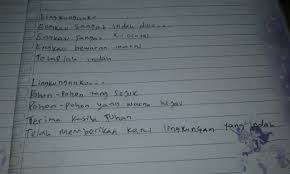 Lingkunganku...
Engkau sangat indah dulu...
Engkau sangat
Engkau bewarna warni
Tetaplah indah
Lingkunganku...
Pohon-Pohon yang sejuk
Pohon-Pohon yang warna hijau
Terima kasih Tuhan
Telah memberikan kami lingkungan yang indah